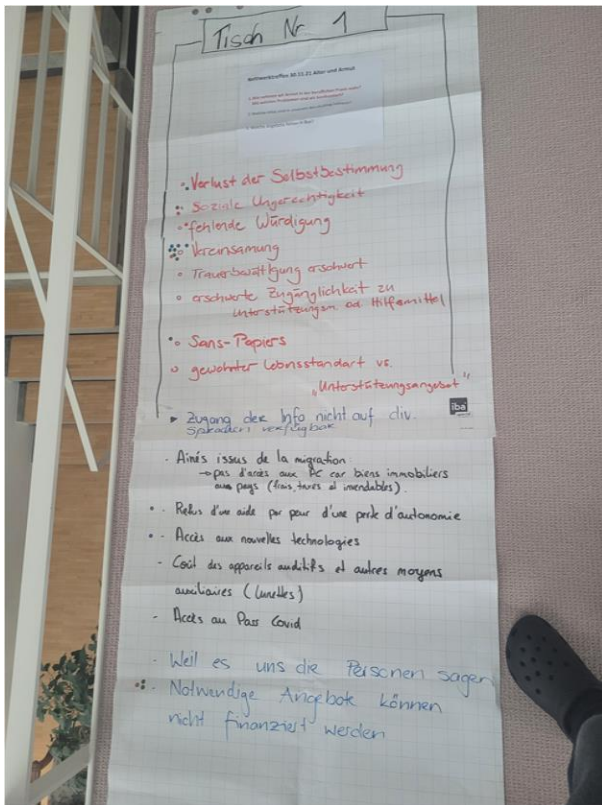 Tisch Nr 1
Netzwerktreffen 30.11.21 Alter und Armut
• Verlust der Selbstbestimmung
• Soziale Ungerechtigkeit
• fehlende Würdigung
• Vereinsamung
• Trauerbewältigung erschwert
○ erschwerte Zugänglichkeit zu
Unterstützungen od Hilfsmittel
○ Sans-Papiers
○ gewohnter Lebensstandart vs.
„Unterstützungsangebot"
▸ Zugang der Info nicht auf div.
Sprachen verfügbar
iba
- Ainés issus de la migration
→ pas d'accès aux PC car biens immobiliers
au pays (frais, taxes et invendables).
- Refus d'une aide par peur d'une perte d'autonomie
- Accès aux nouvelles technologies
- Coût des appareils auditifs et autres moyens
auxiliaires (lunettes)
- Accès au Pass Covid
- Weil es uns die Personen sagen
- Notwendige Angebote können
nicht finanziert werden